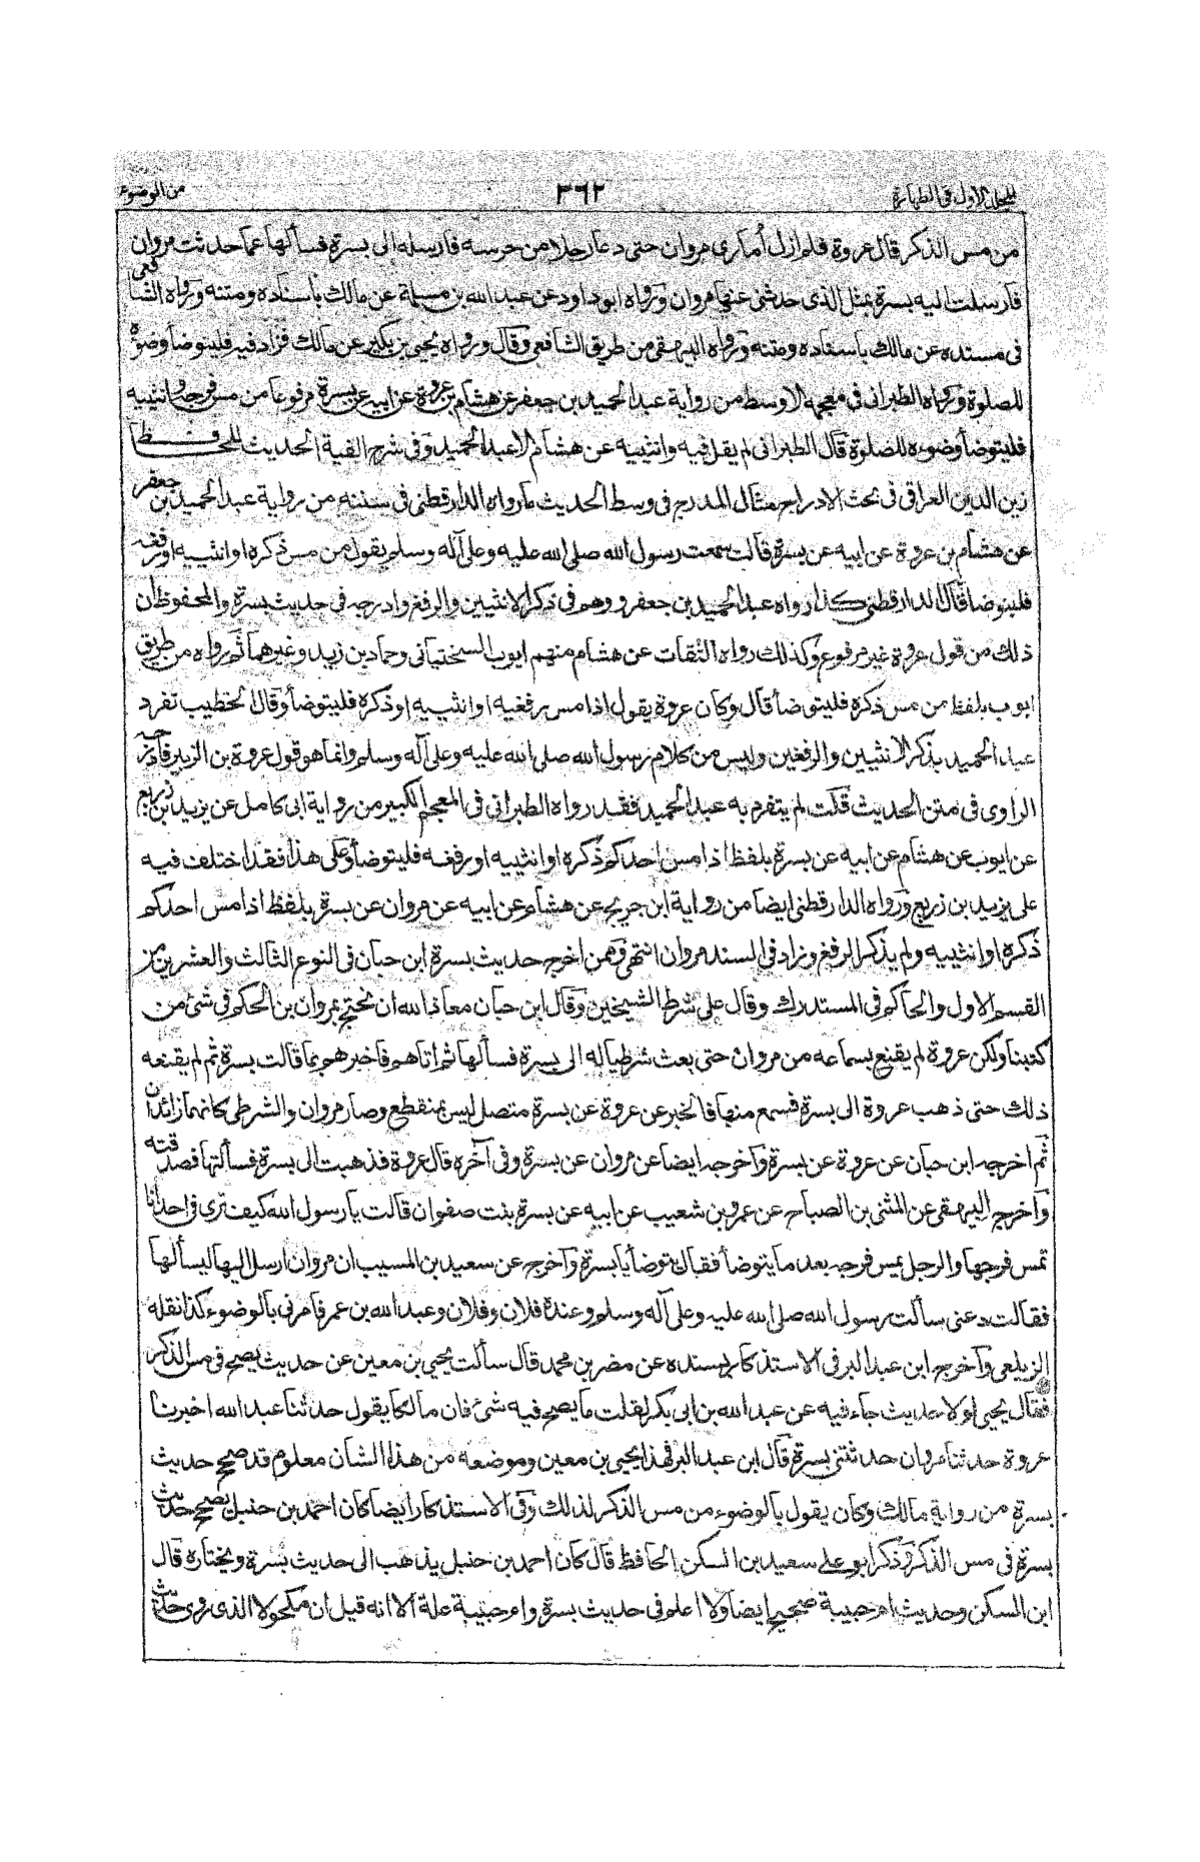 المجلد الاول فى الطهارة ٣٦٢ من الوضوء
من مس الذكر قال عروة فلم ازل أمارى مروان حتى دعا رجلا من حرسه فارسله الى بسرة فسألها عما حدثت مروان
فارسلت اليه بسرة بمثل الذى حدثنى عنها مروان ورواه ابو داود عن عبد الله بن مسلمة عن مالك باسناده ومتنه ورواه الشافعى
فى مسنده عن مالك باسناده ومتنه ورواه البيهقى من طريق الشافعى وقال ورواه يحيى بن بكير عن مالك فزاد فيه فليتوضأ وضوءه
للصلوة ورواه الطبرانى فى معجمه الاوسط من رواية عبد الحميد بن جعفر عن هشام بن عروة عن ابيه عن بسرة مرفوعا من مس فرجه وانثييه
فليتوضأ وضوءه للصلوة قال الطبرانى لم يقل فيه وانثييه عن هشام الا عبد الحميد وفى شرح الفية الحديث للحافظ
زين الدين العراقى فى بحث الادراج مثال المدرج فى وسط الحديث ما رواه الدارقطنى فى سننه من رواية عبد الحميد بن جعفر
عن هشام بن عروة عن ابيه عن بسرة قالت سمعت رسول الله صلى الله عليه وعلى آله وسلم يقول من مس ذكره او انثييه او رفغه
فليتوضأ قال الدارقطنى كذا رواه عبد الحميد بن جعفر ووهم فى ذكر الانثيين والرفغ وادرجه فى حديث بسرة والمحفوظ ان
ذلك من قول عروة غير مرفوع وكذلك رواه الثقات عن هشام منهم ايوب السختيانى وحماد بن زيد وغيرهما ثم رواه من طريق
ايوب بلفظ من مس ذكره فليتوضأ قال وكان عروة يقول اذا مس رفغيه او انثييه او ذكره فليتوضأ وقال الخطيب تفرد
عبد الحميد بذكر الانثيين والرفغين وليس من كلام رسول الله صلى الله عليه وعلى آله وسلم وانما هو قول عروة بن الزبير فادرجه
الراوى فى متن الحديث قلت لم يتفرد به عبد الحميد فقد رواه الطبرانى فى المعجم الكبير من رواية ابى كامل عن يزيد بن زريع
عن ايوب عن هشام عن ابيه عن بسرة بلفظ اذا مس احدكم ذكره او انثييه او رفغه فليتوضأ وعلى هذا فقد اختلف فيه
على يزيد بن زريع ورواه الدارقطنى ايضا من رواية ابن جريج عن هشام عن ابيه عن مروان عن بسرة بلفظ اذا مس احدكم
ذكره او انثييه ولم يذكر الرفغ وزاد فى السند مروان انتهى وممن اخرج حديث بسرة ابن حبان فى النوع الثالث والعشرين من
القسم الاول والحاكم فى المستدرك وقال على شرط الشيخين وقال ابن حبان معاذ الله ان نحتج بمروان بن الحكم فى شئ من
كتبنا ولكن عروة لم يقنع بسماعه من مروان حتى بعث شرطيا له الى بسرة فسألها ثم اتاهم فاخبرهم بما قالت بسرة ثم لم يقنعه
ذلك حتى ذهب عروة الى بسرة فسمع منها فالخبر عن عروة عن بسرة متصل ليس بمنقطع وصار مروان والشرطى كانهما زائدان
ثم اخرجه ابن حبان عن عروة عن بسرة واخرجه ايضا عن مروان عن بسرة وفى آخره قال عروة فذهبت الى بسرة فسألتها فصدقته
واخرج البيهقى عن المثنى بن الصباح عن عمرو بن شعيب عن ابيه عن بسرة بنت صفوان قالت يا رسول الله كيف ترى فى احدانا
تمس فرجها والرجل يمس فرجه بعد ما يتوضأ فقال توضأ يا بسرة واخرج عن سعيد بن المسيب ان مروان ارسل اليها ليسألها
فقالت دعنى سألت رسول الله صلى الله عليه وعلى آله وسلم وعنده فلان وفلان وعبد الله بن عمر فامرنى بالوضوء كذا نقله
الزيلعى واخرجه ابن عبد البر فى الاستذكار بسنده عن مضر بن محمد قال سألت يحيى بن معين عن حديث يصح فى مس الذكر
فقال يحيى لولا حديث جاء فيه عن عبد الله بن ابى بكر لقلت ما يصح فيه شئ فان مالكا يقول حدثنا عبد الله اخبرنا
عروة حدثنا مروان حدثتنى بسرة قال ابن عبد البر فهذا يحيى بن معين وموضعه من هذا الشان معلوم قد صحح حديث
بسرة من رواية مالك وكان يقول بالوضوء من مس الذكر لذلك وفى الاستذكار ايضا كان احمد بن حنبل يصحح حديث
بسرة فى مس الذكر وذكر ابو على سعيد بن السكن الحافظ قال كان احمد بن حنبل يذهب الى حديث بسرة ويختاره قال
ابن السكن وحديث ام حبيبة صحيح ايضا ولا اعلم فى حديث بسرة وام حبيبة علة الا انه قيل ان مكحولا الذى روى حديث